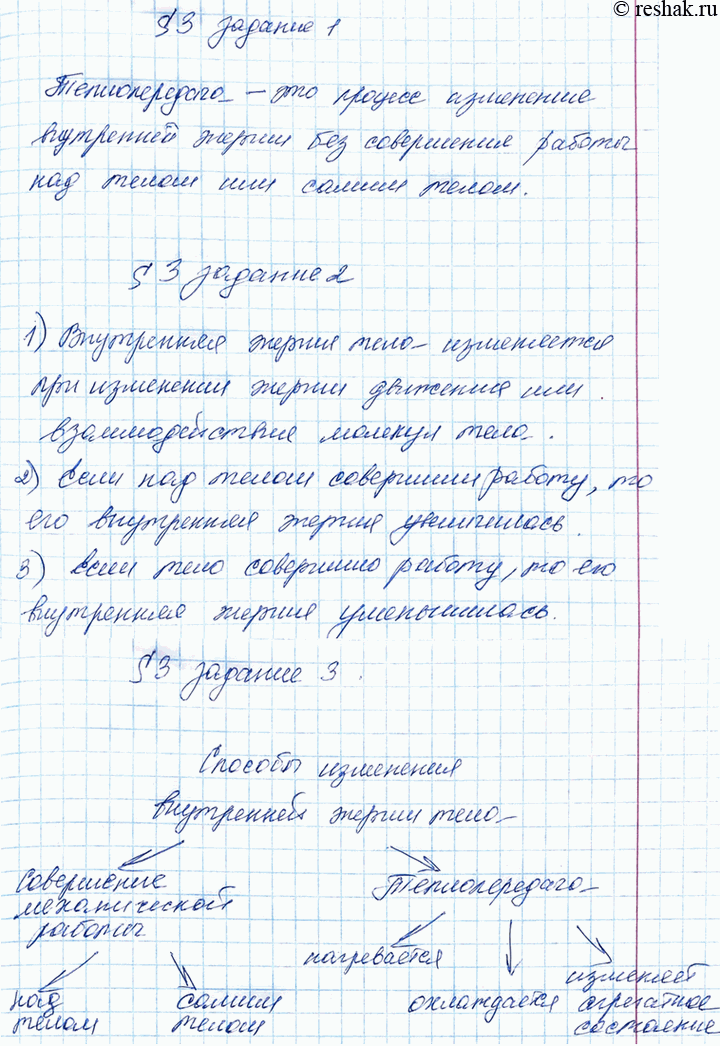 © reshak.ru
§3 задание 1
Теплопередача — это процесс изменение
внутренней энергии без совершения работы
над телом или самим телом.
§3 задание 2
1) Внутренняя энергия тела изменяется
при изменении энергии движения или
взаимодействия молекул тела.
2) Если над телом совершили работу, то
его внутренняя энергия увеличилась.
3) Если тело совершило работу, то его
внутренняя энергия уменьшилась.
§3 задание 3.
Способы изменения
внутренней энергии тела
Совершение Теплопередача
механической
работы
нагревается
над самим охлаждается изменяет
телом телом агрегатное
состояние